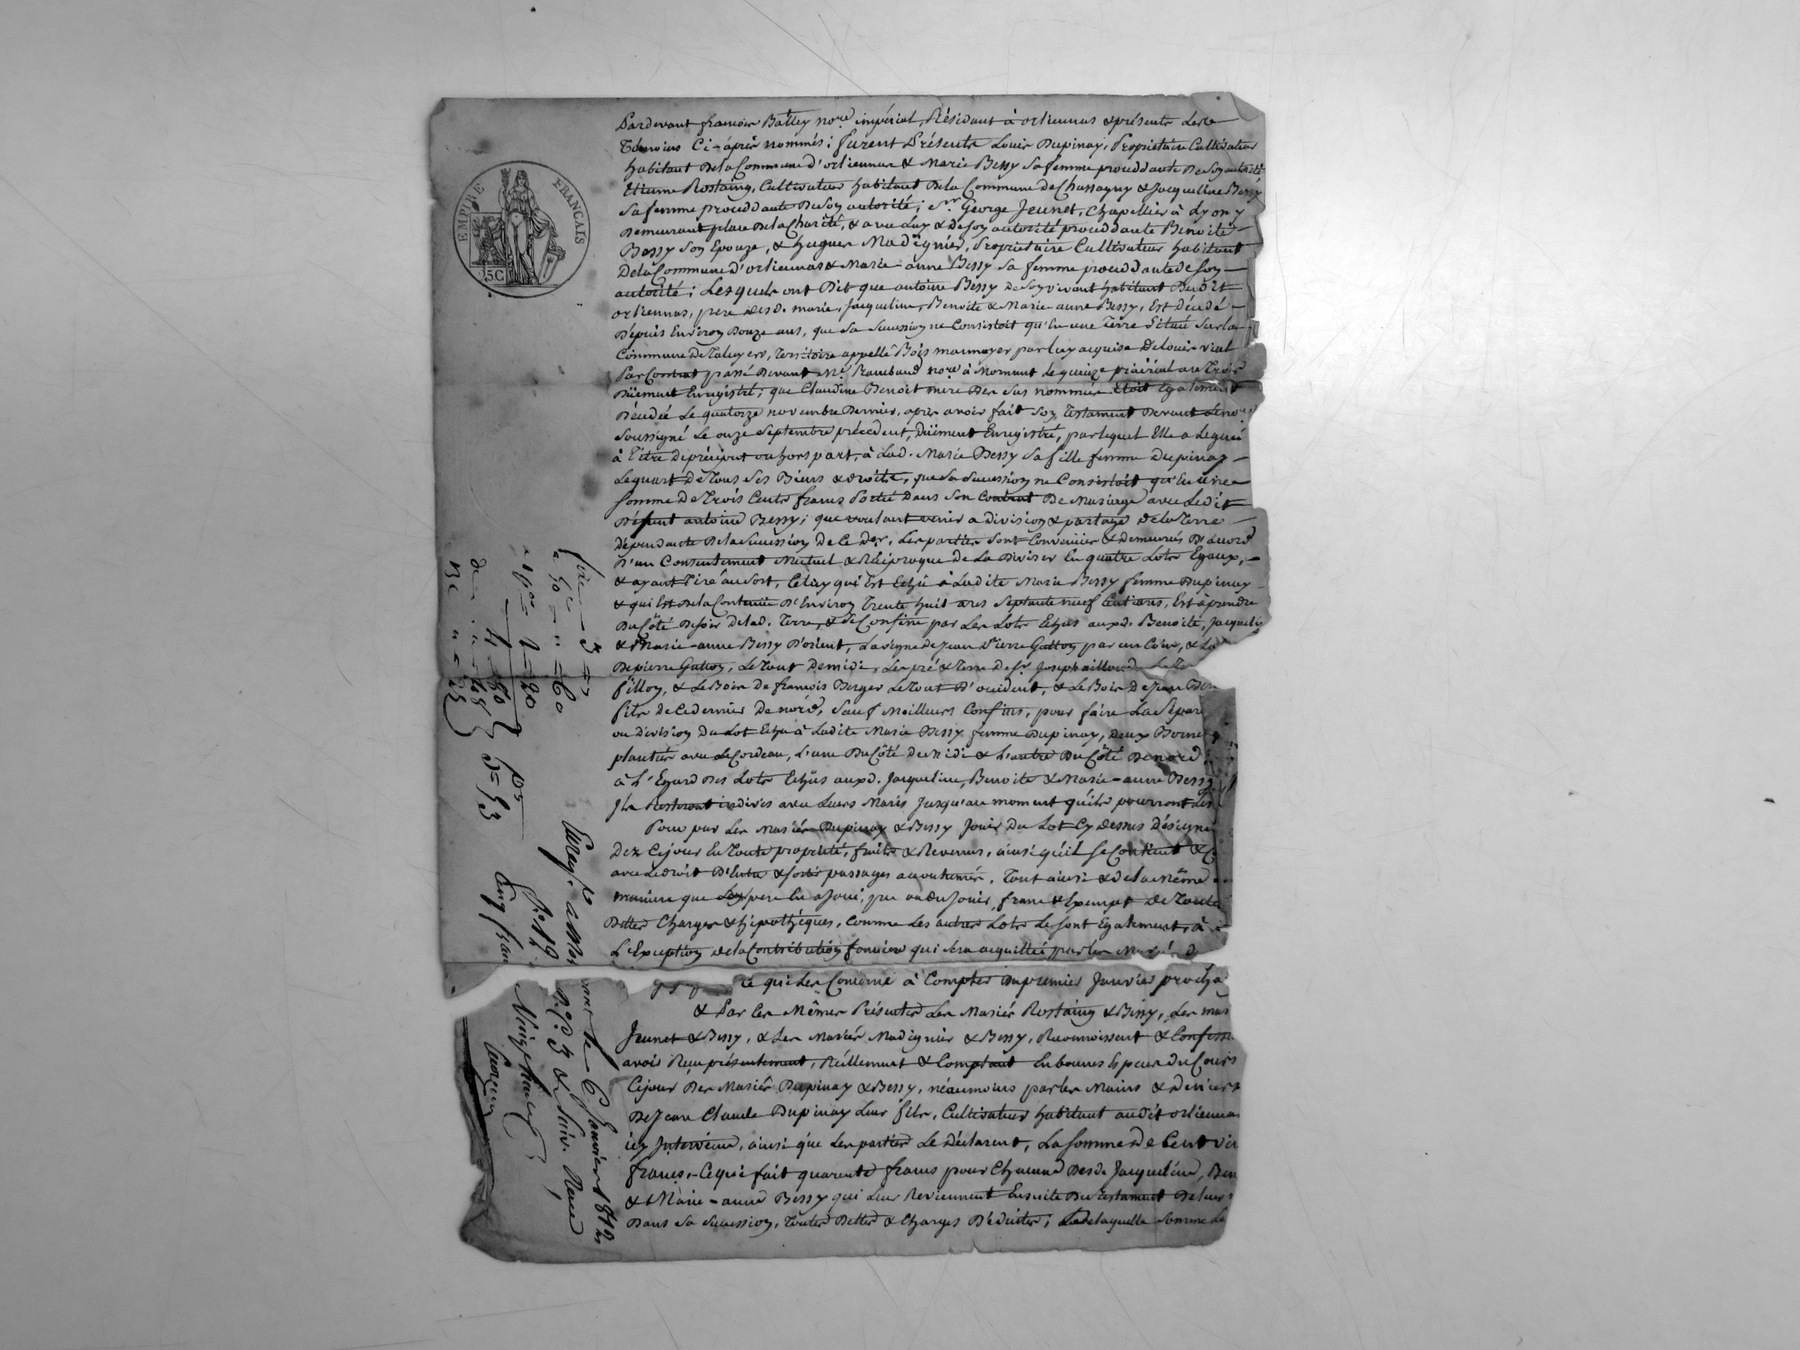 EMPIRE FRANÇAIS
25C
Pardevant françois Balley no.re impérial, Résidant à orliennas & présents les
Témoins Ci-après nommés; furent Présents Louis Dupinay, Propriétaire Cultivateur
habitant De la Commune d'orliennas & Marie Bessy sa femme procéddante De Son autorité
Etienne Rostaing, Cultivateur habitant De la Commune de Chassagny & Jacqueline Bessy
sa femme procéddante De Son autorité; Sr. George Jeunet, Chapellier à Lyon y
Demeurant place De la Charité, & avec luy & De Son autorité procéddante Benoite
Bessy Son Epouze, & hugues Madignier, Propriétaire Cultivateur habitant
De la Commune d'orliennas & Marie-anne Bessy sa femme procéddante de Son
autorité; Lesquels ont Dit que antoine Bessy de Son vivant habitant Dudit
orliennas, pere desd. marie, Jacqueline, Benoite & Marie anne Bessy, Est décédé
Depuis Environ Douze ans, que Sa Succession ne Consistoit qu'en une Terre Située Sur la
Commune De Taluyers, Territoire appellé Bois marmoyer par luy acquise De louis vial
Par Contrat passé Devant Me. Raimbaud no.re à Mornant le quinze prairial an Treize
Düement Enregistré; que Claudine Benoit mere Des sus nommées Etoit Egalement
Décédée Le quatorze novembre Dernier, après avoir fait Son Testament Devant Le no.re
Soussigné Le onze Septembre précédent, Düement Enregistré, par lequel Elle a Legué
à Titre de préciput ou hors part, à Lad. Marie Bessy Sa fille femme Dupinay
Le quart De Tous Ses Biens & droits, que Sa Succession ne Consistoit qu'en une
Somme De Trois Cents francs Portée Dans Son Contrat De Mariage avec Ledit
Défunt antoine Bessy; que voulant venir a division & partage De la Terre
Dépendante De la Succession De Ce Der. Les parties Sont Convenües & Demeurées D'accord
D'un Consentement Mutuel & Réciproque de La Diviser En quatre Lots Egaux,
& ayant Tiré au Sort, Celuy qui Est Echü à Ladite Marie Bessy femme Dupinay
& qui Est De la Contenüe D'Environ Trente huit ares Septante neuf Centiares, Est à prendre
Du Côté De Soir De lad. Terre, & Se Confine par Les Lots Echus auxd. Benoite, Jacqueline
& Marie-anne Bessy D'orient, La vigne de Jean Pierre Gatton par un Coin, & La
De pierre Gatton, Le Tout De midi, Les pré & Terre de Sr. Joseph
fillon, & Le Bois De françois Berger Le Tout D'occident, & Le Bois De Jean
fils de Ce dernier De nord, Sauf Meilleurs Confins; pour faire La Sépar
ou division Du Lot Echu à Ladite Marie Bessy femme Dupinay, Deux Bornes
plantées avec Le Cordeau, L'une Du Côté De midi & L'autre Du Côté De nord
à L'Egard Des Lots Echus auxd. Jacqueline, Benoite & Marie-anne Bessy
Ils Resteront indivis avec Leurs Maris Jusqu'au moment qu'ils pourront
Pour par Les Mariés Dupinay & Bessy Jouir Du Lot Cy Dessus Désigné
Dez Ce jour En Toute propriété, fruits & Revenus, ainsi qu'il Se Contient &
avec Le droit D'Entrée & Sortie passages accoutumés, Tout ainsi & de la Même
maniere que pere En a Joui, pu ou du Jouir, franc & Exempt De Toutes
Dettes Charges & hipothèques, Comme Les autres Lots Le Sont Egalement, à
L'Exception de la Contribution fonciere qui Sera acquittée par Les Mariés
ce qui Les Concerne à Compter Du premier Janvier procha
& Par Les Mêmes Présentes Les Mariés Rostaing & Bessy, Les mar
Jeunet & Bessy, & Les Mariés Madignier & Bessy, Reconnoissent & Confess
avoir Reçu présentement, Réellement & Comptant En bonnes Especes Du Cours
Ce jour Des Mariés Dupinay & Bessy, néanmoins par Les Mains & Deniers
De Jean Claude Dupinay Leur fils, Cultivateur habitant audit orliennas
icy Intervenu, ainsi que Les parties Le Déclarent, La Somme De Cent vin
francs, Ce qui fait quarante francs pour Chacune Desd. Jacqueline, Ben
& Marie-anne Bessy qui Leur Reviennent Ensuite Du Testament De leur
Dans Sa Succession, Toutes Dettes & Charges Déduites; De laquelle Somme Le
Enreg.é à
vier le 6 Janvier 1812
f.o 19
r.o C. 3 & Suiv. Reçu
Cinq fran
Vingt trois C